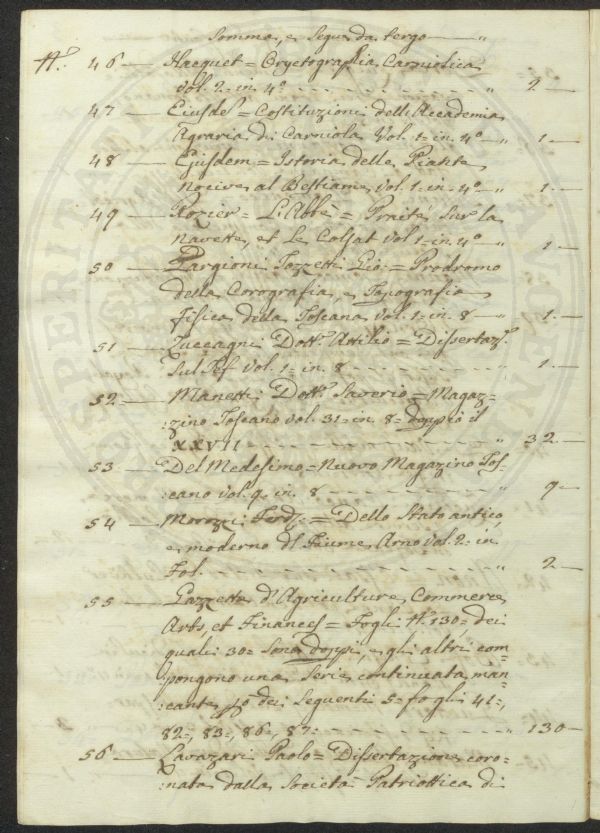 Somma, e segue da tergo — "
N.° 46 — Hacquet = Oryctographia Carniolica
Vol. 2 = in 4° - - - - - - - - - - " 2 —
47 — Eiusde.m = Costituzioni dell'Accademia
Agraria di Carniola Vol. 1 = in. 4° — " 1 —
48 — Ejusdem = Istoria delle Piante
nocive al Bestiame, Vol. 1 = in = 4° — " 1 —
49 — Rozier = L'Abbè = Traité sur la
Navette, et le Colsat Vol 1 = in. 4° — " 1 —
50 — Targioni Tozzetti Gio: = Prodromo
della Corografia, e Topografia
Fisica della Toscana Vol. 1 = in. 8 — " 1. —
51 — Zuccagni Dott.r Attilio = Dissertaz.e
Sul Vol. 1 = in. 8 - - - - - - - " 1 —
52 — Manetti Dott.r Saverio = Magaz=
:zino Toscano Vol. 31 = in. 8 = doppio il
XXVII - - - - - - - - - - - " 32 —
53 — Del Medesimo = Nuovo Magazino Tos=
:cano Vol. 9. in. 8 - - - - - - - - " 9 —
54 — Morozzi Ferd.o = Dello Stato antico,
e moderno del Fiume Arno Vol. 2 = in
Fol. - - - - - - - - - - - - " 2 —
55 — Gazzette d'Agriculture, Commerce
Arts, et Finances = Fogli N.° 130 = dei
quali 30 = sono doppi, e gli altri com=
pongono una Serie continuata man=
:cante però dei seguenti 5 = fogli 41 =,
82 =, 83 =, 86 =, 87: - - - - - - - " 130 —
56 — Lavazari Paolo = Dissertazione coro=
:nata dalla Società Patriottica di